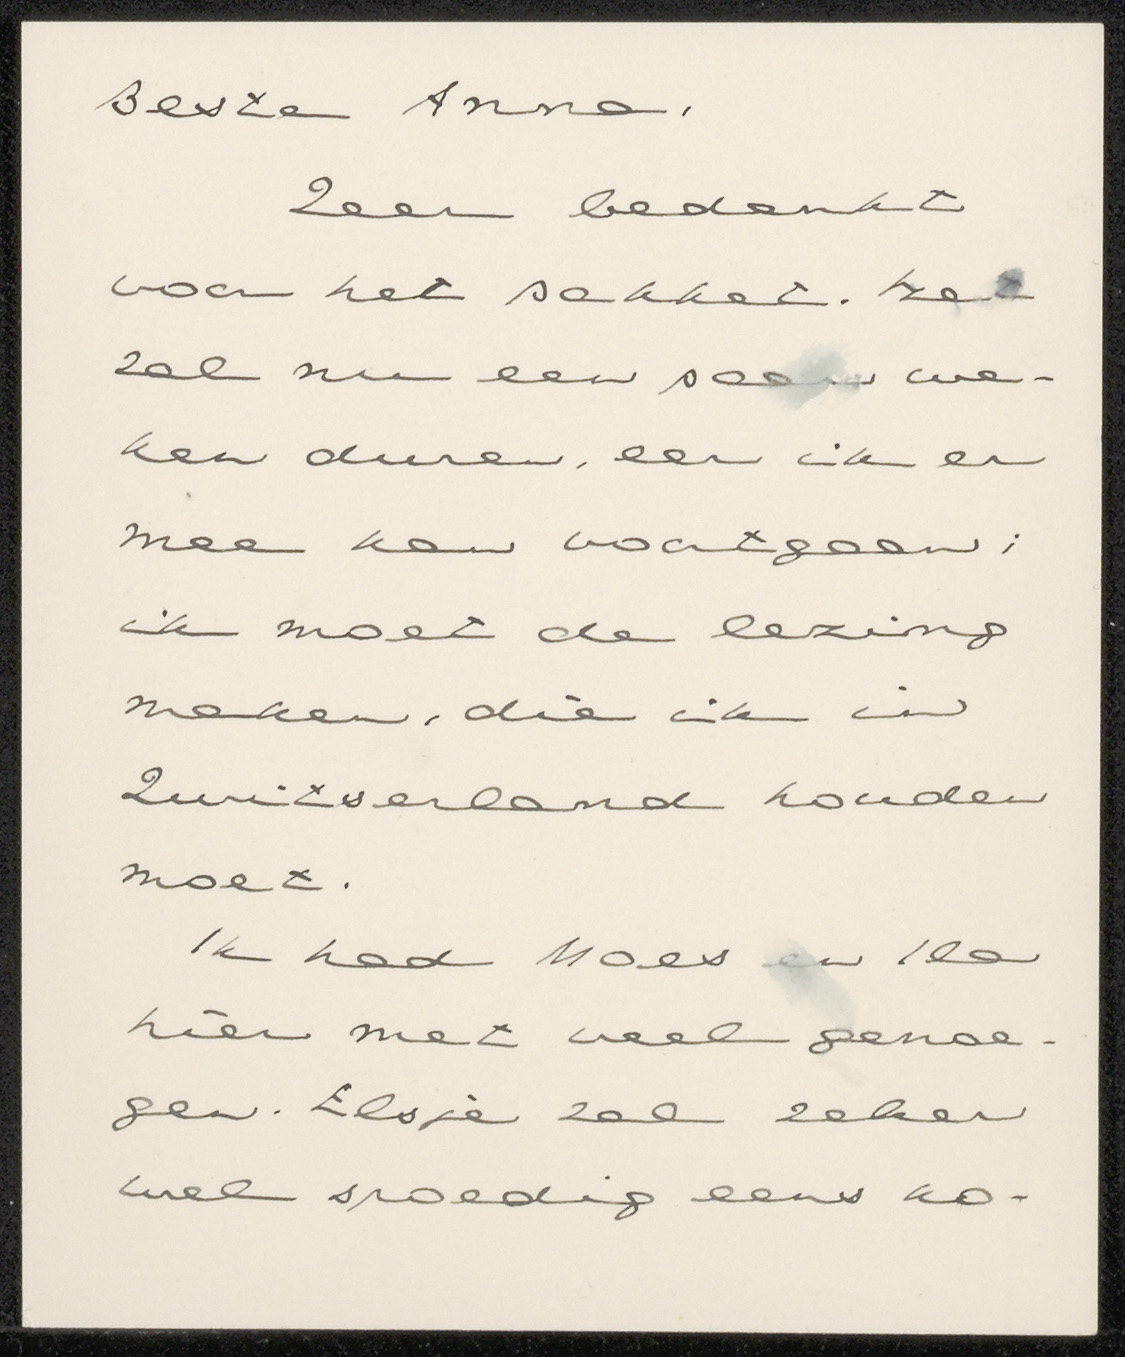 Beste Anna,
Zeer bedankt
voor het pakket. Het
zal nu een paar we-
ken duren, eer ik er
mee kan voortgaan;
ik moet de lezing
maken, die ik in
Zwitserland houden
moet.
Ik had Moes en Ila
hier met veel genoe-
gen. Elsje zal zeker
wel spoedig eens ko-